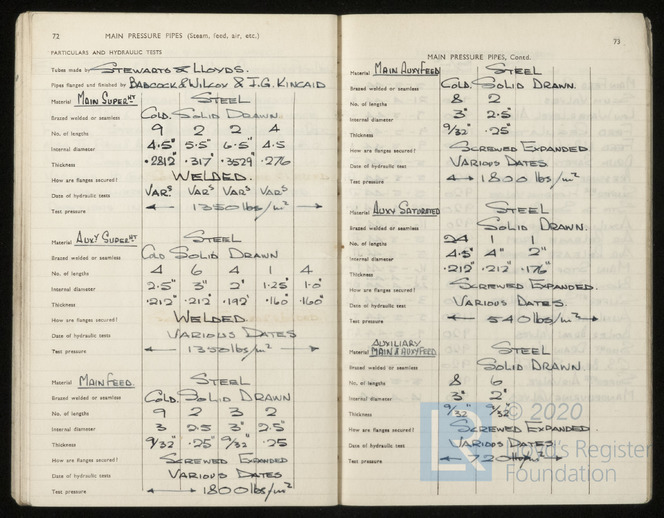 72 MAIN PRESSURE PIPES (Steam, feed, air, etc.)
PARTICULARS AND HYDRAULIC TESTS
Tubes made by STEWARTS & LLOYDS.
Pipes flanged and finished by BABCOCK & WILCOX & J.G. KINCAID
Material MAIN SUPERHT STEEL
Brazed welded or seamless COLD. SOLID DRAWN.
No. of lengths 9 2 2 4
Internal diameter 4.5" 5.5" 6.5" 4.5
Thickness .2812" .317" .3529 .276
How are flanges secured? WELDED.
Date of hydraulic tests VARS VARS VARS VARS
Test pressure 1350 lbs/in2
Material AUXY SUPERHT STEEL
Brazed welded or seamless COLD SOLID DRAWN
No. of lengths 4 6 4 1 4
Internal diameter 2.5" 3" 2" 1.25" 1.0"
Thickness .212" .212 .192" .160" .160"
How are flanges secured? WELDED.
Date of hydraulic tests VARIOUS DATES
Test pressure 1350 lbs/in2
Material MAIN FEED. STEEL
Brazed welded or seamless COLD. SOLID DRAWN
No. of lengths 9 2 3 2
Internal diameter 3 2.5 3" 2.5"
Thickness 9/32" .25" 9/32" .25
How are flanges secured? SCREWED EXPANDED
Date of hydraulic tests VARIOUS DATES
Test pressure 1800 lbs/in2
73
MAIN PRESSURE PIPES, Contd.
Material MAIN AUXY FEED STEEL
Brazed welded or seamless COLD. SOLID DRAWN.
No. of lengths 8 2
Internal diameter 3" 2.5"
Thickness 9/32" .25"
How are flanges secured? SCREWED EXPANDED.
Date of hydraulic tests VARIOUS DATES
Test pressure 1800 lbs/in2
Material AUXY SATURATED STEEL
Brazed welded or seamless SOLID DRAWN.
No. of lengths 24 1 1
Internal diameter 4.5" 4" 2"
Thickness .212" .212" .176"
How are flanges secured? SCREWED EXPANDED.
Date of hydraulic tests VARIOUS DATES.
Test pressure 540 lbs/in2
AUXILIARY
Material MAIN & AUXY FEED STEEL
Brazed welded or seamless SOLID DRAWN.
No. of lengths 8 6
Internal diameter 3" 2"
Thickness 9/32" 9/32"
How are flanges secured? SCREWED EXPANDED.
Date of hydraulic tests VARIOUS DATES
Test pressure 720
LR © 2020
Lloyd's Register
Foundation